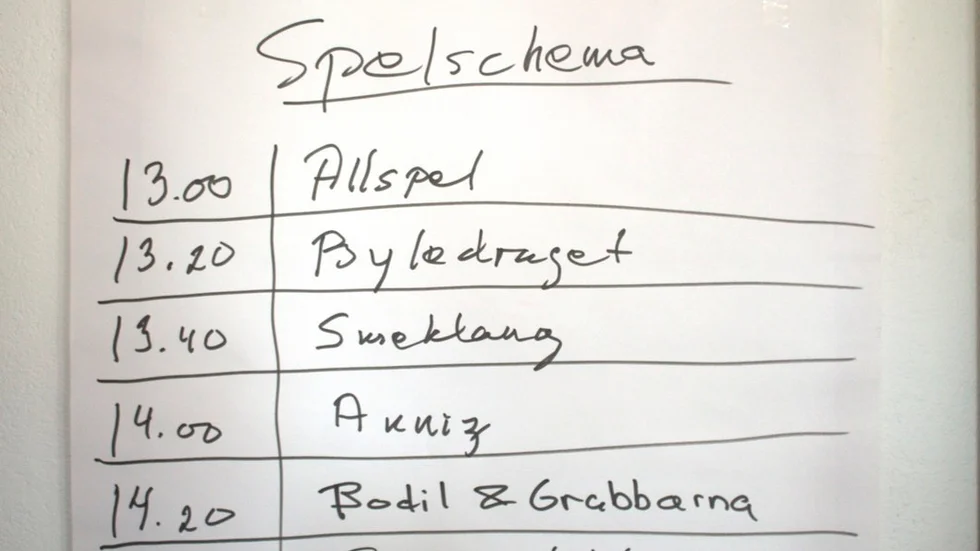 Spelschema
13.00 Allspel
13.20 Byledraget
13.40 Smeklang
14.00
14.20 Bodil & Grabbarna